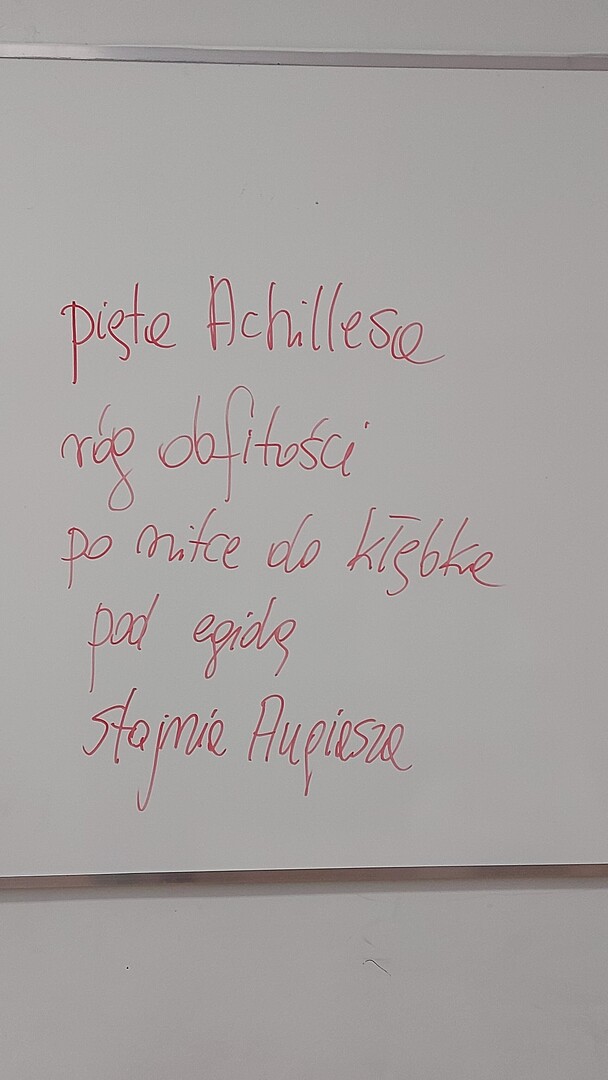 pięta Achillesa
róg obfitości
po nitce do kłębka
pod egidą
stajnia Augiasza